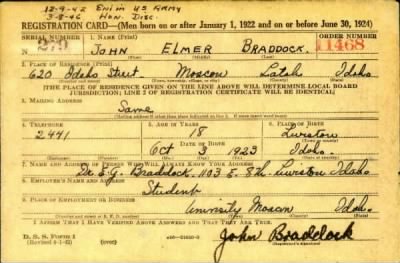 12-9-42 Enl in US ARMY
3-8-46 Hon. Disc.
REGISTRATION CARD—(Men born on or after January 1, 1922 and on or before June 30, 1924)
SERIAL NUMBER 1. NAME (Print) ORDER NUMBER
JOHN ELMER BRADDOCK. 11468
(First) (Middle) (Last)
2. PLACE OF RESIDENCE (Print)
620 Idaho Street Moscow Latah Idaho
(Number and street) (Town, township, village, or city) (County) (State)
[THE PLACE OF RESIDENCE GIVEN ON THE LINE ABOVE WILL DETERMINE LOCAL BOARD
JURISDICTION; LINE 2 OF REGISTRATION CERTIFICATE WILL BE IDENTICAL]
3. MAILING ADDRESS
Same
[Mailing address if other than place indicated on line 2. If same insert word same]
4. TELEPHONE 5. AGE IN YEARS 6. PLACE OF BIRTH
2441 18 Lewiston
DATE OF BIRTH
Oct 3 1923 Idaho.
(Mo.) (Day) (Yr.)
7. NAME AND ADDRESS OF PERSON WHO WILL ALWAYS KNOW YOUR ADDRESS
Dr. E.G. Braddock. 1103 E. 8th. Lewiston Idaho
8. EMPLOYER'S NAME AND ADDRESS
Student
9. PLACE OF EMPLOYMENT OR BUSINESS
University Moscow Idaho.
(Number and street or R. F. D. number) (Town) (County) (State)
I AFFIRM THAT I HAVE VERIFIED ABOVE ANSWERS AND THAT THEY ARE TRUE.
D. S. S. Form 1
(Revised 6-1-42) (over)
John Braddock
(Registrant's signature)